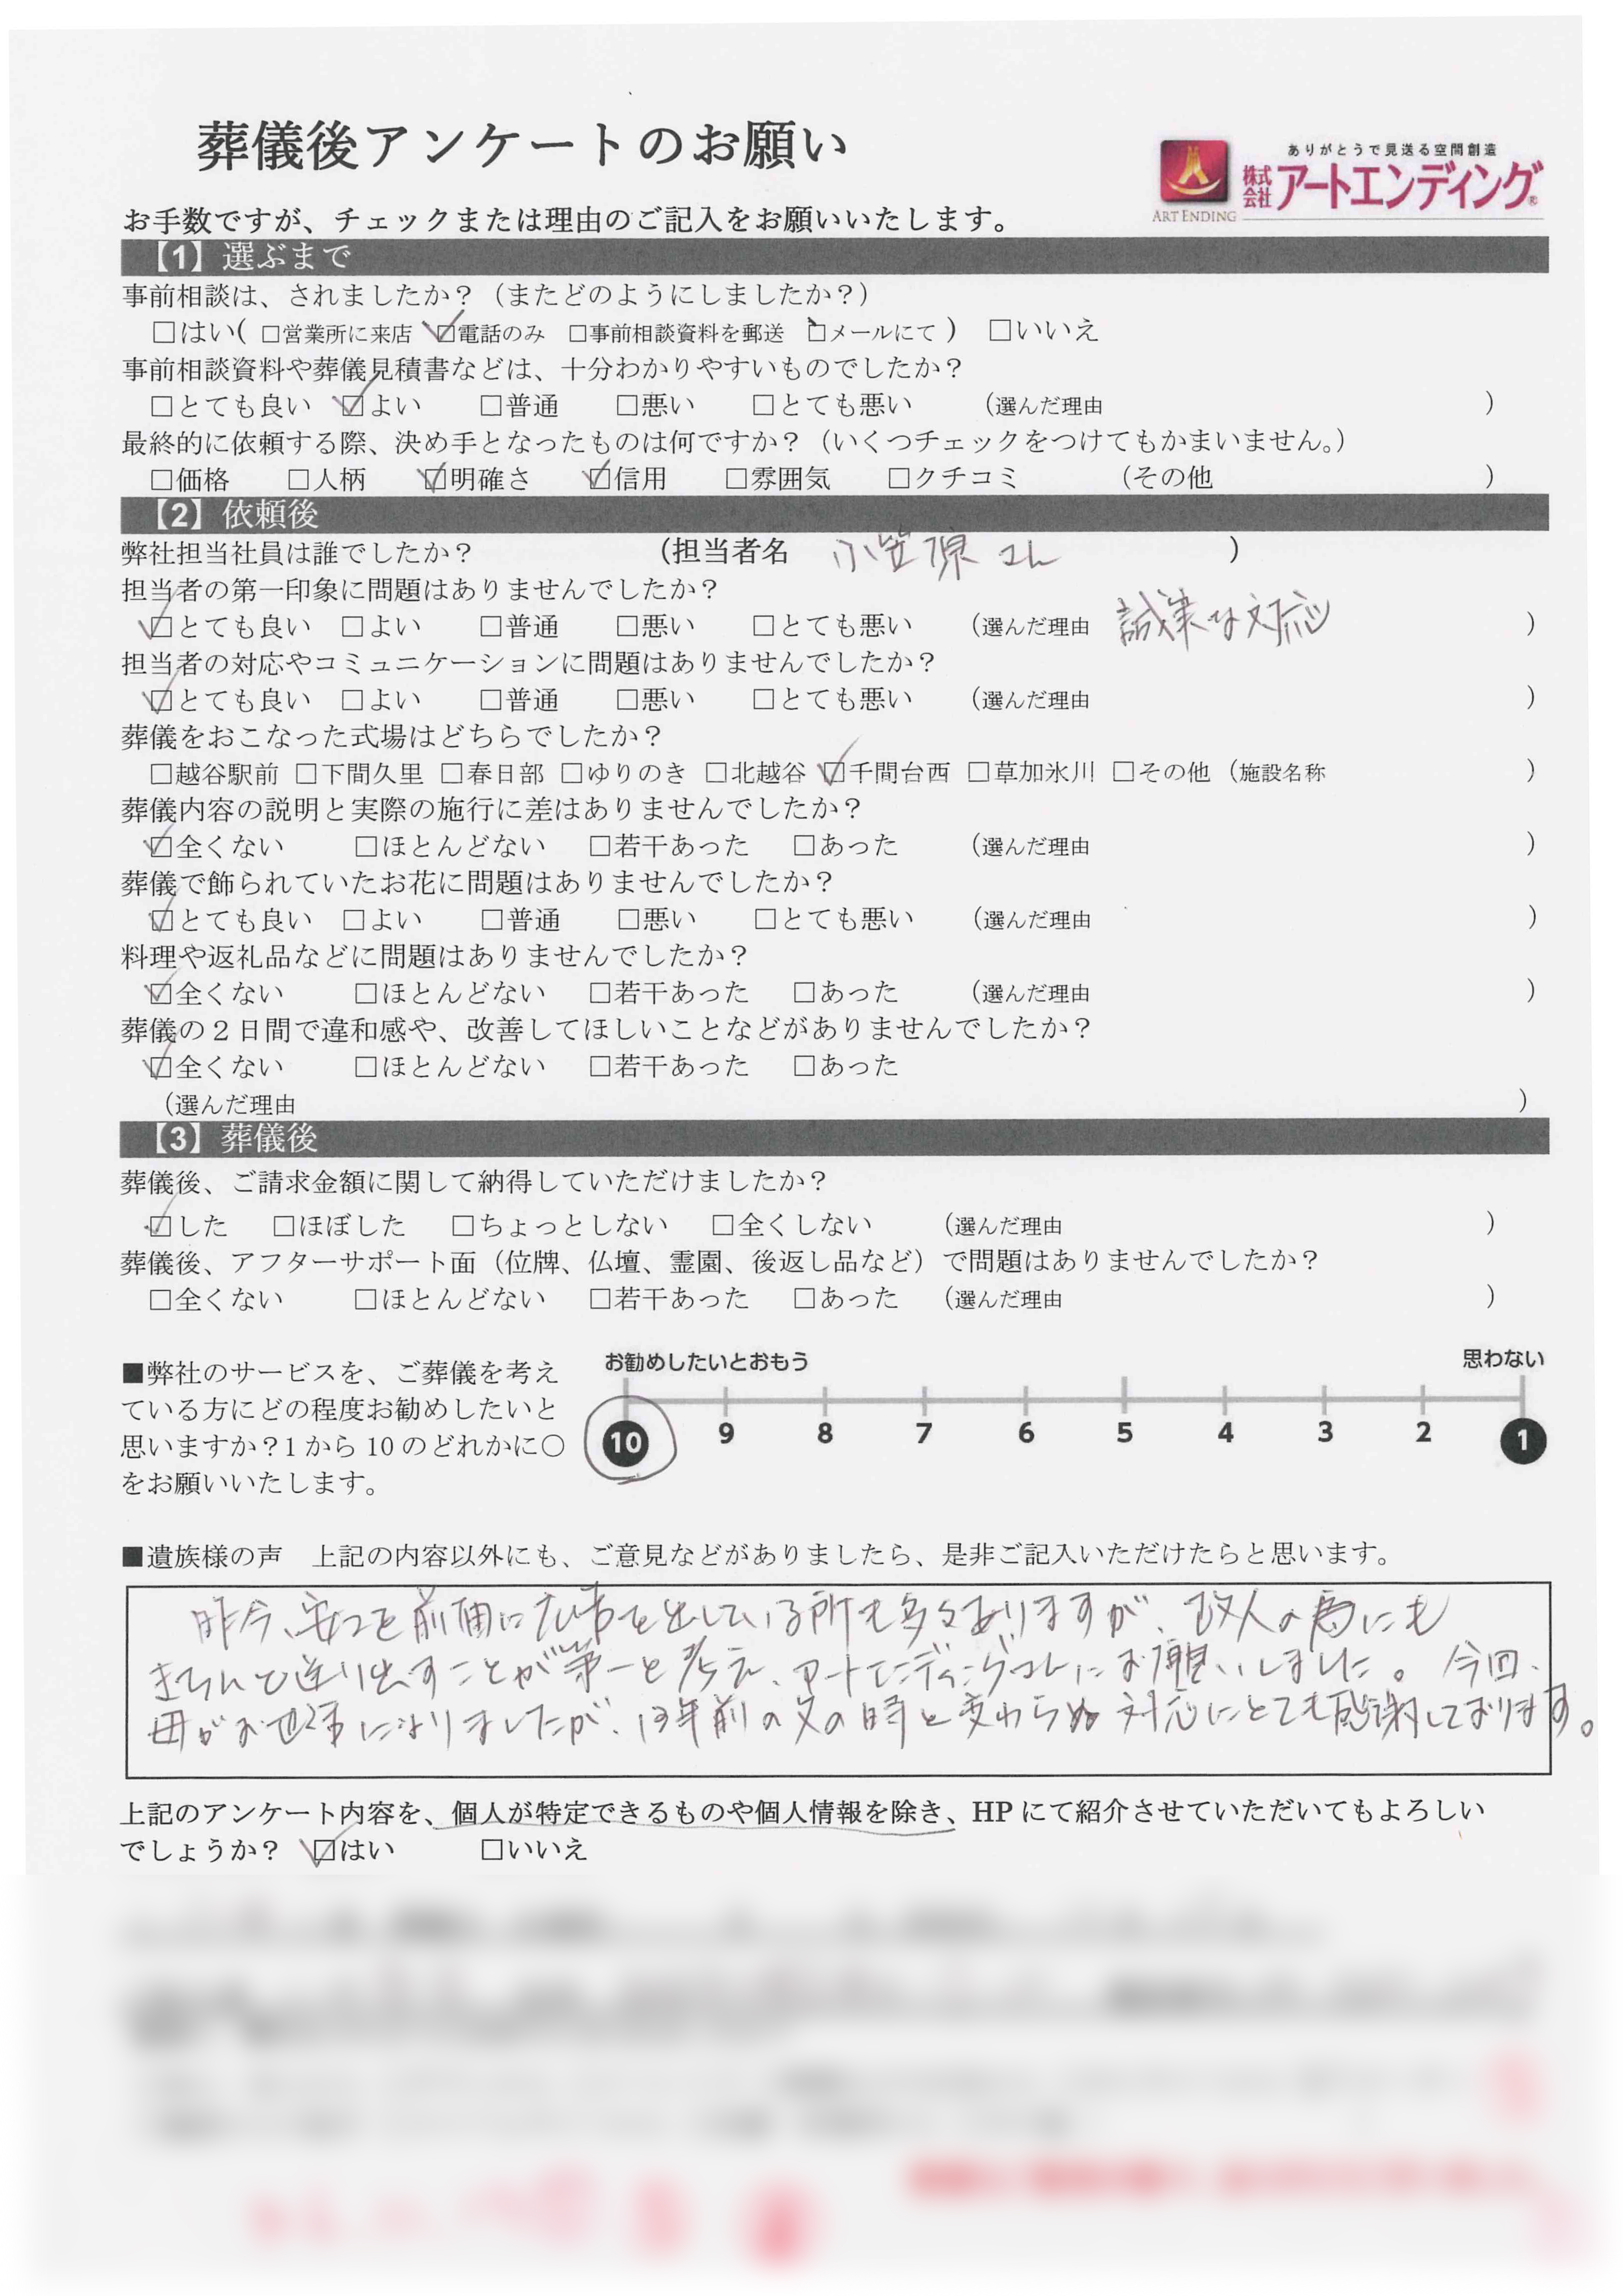 葬儀後アンケートのお願い
ありがとうで見送る空間創造
株式会社アートエンディング®
ART ENDING
お手数ですが、チェックまたは理由のご記入をお願いいたします。
【1】選ぶまで
事前相談は、されましたか？（またどのようにしましたか？）
□はい( □営業所に来店 ☑電話のみ □事前相談資料を郵送 □メールにて ) □いいえ
事前相談資料や葬儀見積書などは、十分わかりやすいものでしたか？
□とても良い ☑よい □普通 □悪い □とても悪い （選んだ理由 ）
最終的に依頼する際、決め手となったものは何ですか？（いくつチェックをつけてもかまいません。）
□価格 □人柄 ☑明確さ ☑信用 □雰囲気 □クチコミ （その他 ）
【2】依頼後
弊社担当社員は誰でしたか？ （担当者名 小笠原さん ）
担当者の第一印象に問題はありませんでしたか？
☑とても良い □よい □普通 □悪い □とても悪い （選んだ理由 誠実な対応 ）
担当者の対応やコミュニケーションに問題はありませんでしたか？
☑とても良い □よい □普通 □悪い □とても悪い （選んだ理由 ）
葬儀をおこなった式場はどちらでしたか？
□越谷駅前 □下間久里 □春日部 □ゆりのき □北越谷 ☑千間台西 □草加氷川 □その他（施設名称 ）
葬儀内容の説明と実際の施行に差はありませんでしたか？
☑全くない □ほとんどない □若干あった □あった （選んだ理由 ）
葬儀で飾られていたお花に問題はありませんでしたか？
☑とても良い □よい □普通 □悪い □とても悪い （選んだ理由 ）
料理や返礼品などに問題はありませんでしたか？
☑全くない □ほとんどない □若干あった □あった （選んだ理由 ）
葬儀の２日間で違和感や、改善してほしいことなどがありませんでしたか？
☑全くない □ほとんどない □若干あった □あった
（選んだ理由 ）
【3】葬儀後
葬儀後、ご請求金額に関して納得していただけましたか？
☑した □ほぼした □ちょっとしない □全くしない （選んだ理由 ）
葬儀後、アフターサポート面（位牌、仏壇、霊園、後返し品など）で問題はありませんでしたか？
□全くない □ほとんどない □若干あった □あった （選んだ理由 ）
■弊社のサービスを、ご葬儀を考え
ている方にどの程度お勧めしたいと
思いますか？1 から 10 のどれかに○
をお願いいたします。
お勧めしたいとおもう 思わない
10 9 8 7 6 5 4 3 2 1
■遺族様の声 上記の内容以外にも、ご意見などがありましたら、是非ご記入いただけたらと思います。
昨今、安さを前面に広告を出している所も多々ありますが、故人の為にも
きちんと送り出すことが第一と考え、アートエンディングさんにお願いしました。今回、
母がお世話になりましたが、13年前の父の時と変わらぬ対応にとても感謝しております。
上記のアンケート内容を、個人が特定できるものや個人情報を除き、HP にて紹介させていただいてもよろしい
でしょうか？ ☑はい □いいえ